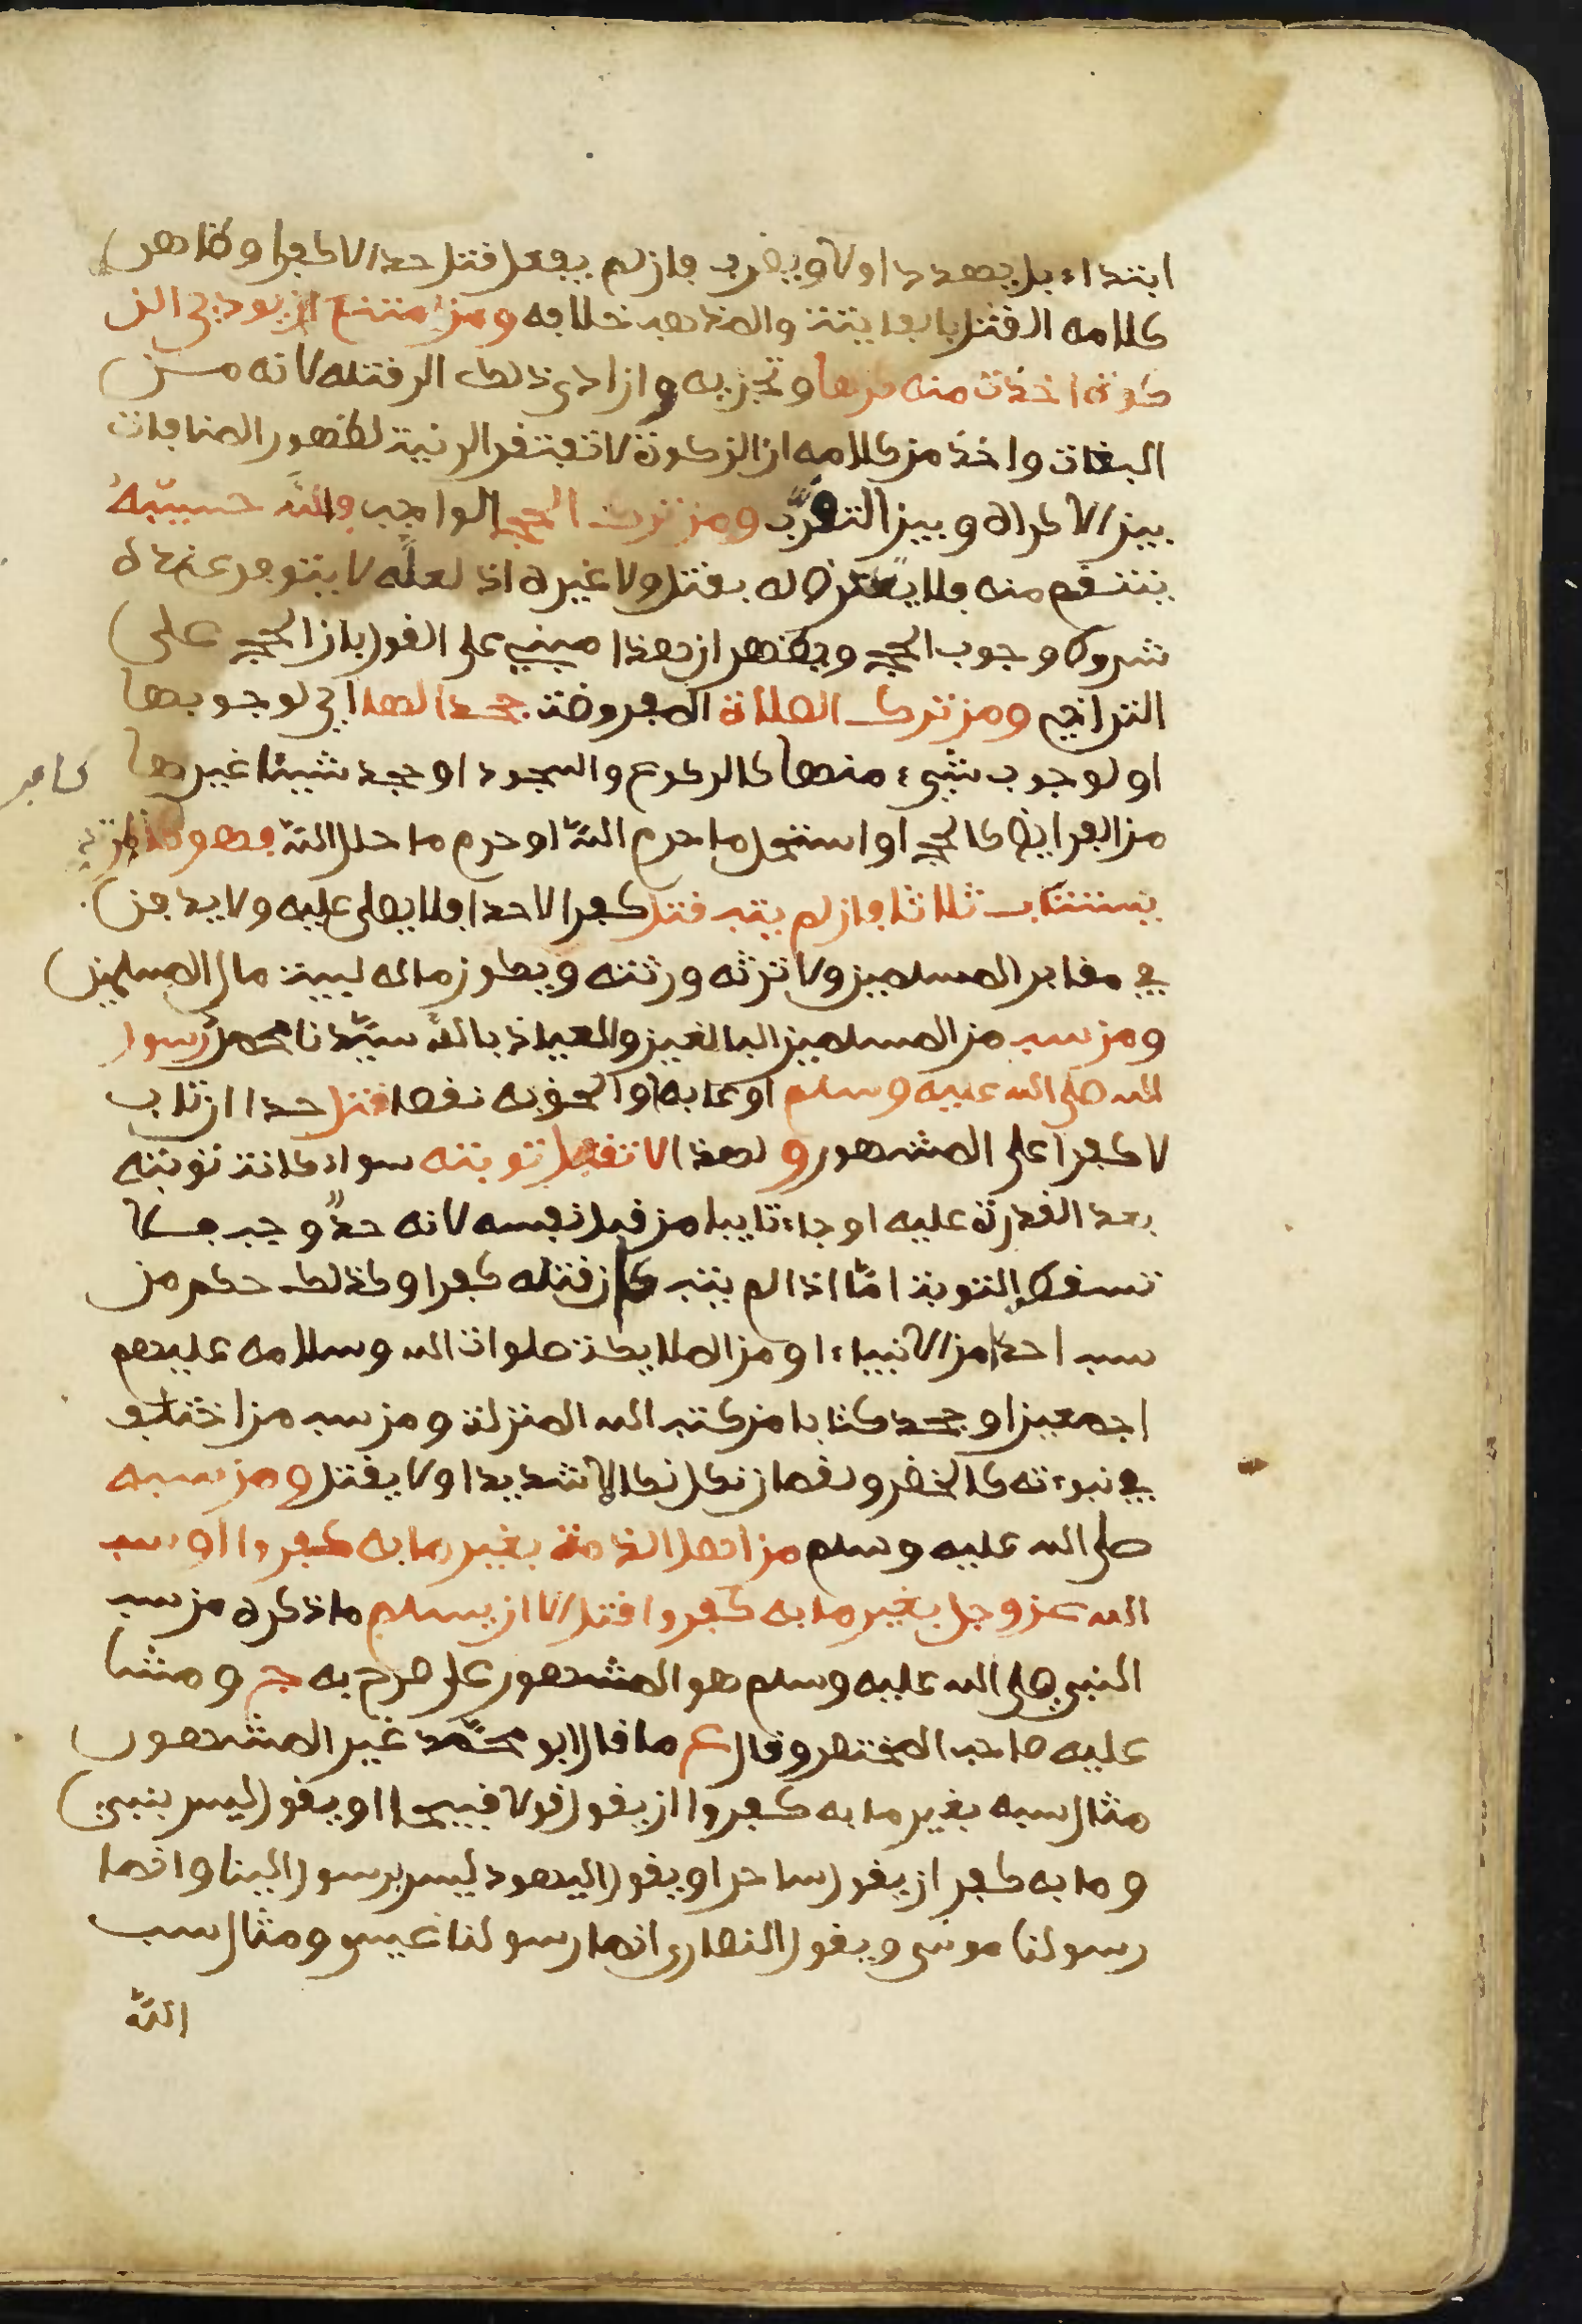 ابتداء بل يهدد اولا ويضرب فان لم يفعل قتل حدا لا كفرا وظاهر
كلامه القتل بالفايتة والمذهب خلافه ومن امتنع ان يودي الز
كوة اخذت منه كرها وتجزيه وان ادى ذلك الى قتله لانه من
البغات واخذ من كلامه ان الزكوة لا تفتقر الى نية لظهور المنافات
بين الاكراه وبين التقرب ومن ترك الحج الواجب فالله حسيبه
ينتقم منه فلا يتعرض له بقتل ولا غيره اذ لعله لا يتوفر عنده
شروط وجوب الحج ويظهر ان هذا مبني على القول بان الحج على
التراخي ومن ترك الصلاة المفروضة جحدا لها اي لوجوبها
او لوجوب شيء منها كالركوع والسجود او جحد شيئا غيرها
من الفرايض كالحج او استحل ما حرم الله او حرم ما حلل الله فهو كالمرتد
كافر
يستتاب ثلاثا فان لم يتب قتل كفرا لا حدا فلا يصلى عليه ولا يدفن
في مقابر المسلمين ولا ترثه ورثته ويكون ماله لبيت مال المسلمين
ومن سب من المسلمين البالغين والعياذ بالله سيدنا محمدا رسول
الله صلى الله عليه وسلم او عابه او الحق به نقصا قتل حدا ان تاب
لا كفرا على المشهور و لهذا لا تقبل توبته سواء كانت توبته
بعد القدرة عليه او جاء تايبا من قبل نفسه لانه حد وجب فلا
تسقطه التوبة اما اذا لم يتب كان قتله كفرا وكذلك حكم من
سب احدا من الانبياء او من الملايكة صلوات الله وسلامه عليهم
اجمعين او جحد كتابا من كتب الله المنزلة ومن سب من اختلف
في نبوءته كالخضر ولقمان نكل نكالا شديدا ولا يقتل ومن سبه
صلى الله عليه وسلم من اهل الذمة بغير ما به كفروا او سب
الله عز وجل بغير ما به كفروا قتل الا ان يسلم ما ذكره من سب
النبي صلى الله عليه وسلم هو المشهور على ما صرح به ج ومشا
عليه صاحب المختصر وقال ع ما قال ابو محمد غير المشهور
مثال سبه بغير ما به كفروا ان يقول قولا قبيحا او يقول ليس بنبي
وما به كفر ان يقول ساحر او يقول اليهود ليس برسول الينا وانما
رسولنا موسى ويقول النصارى انما رسولنا عيسى ومثال سب
الله